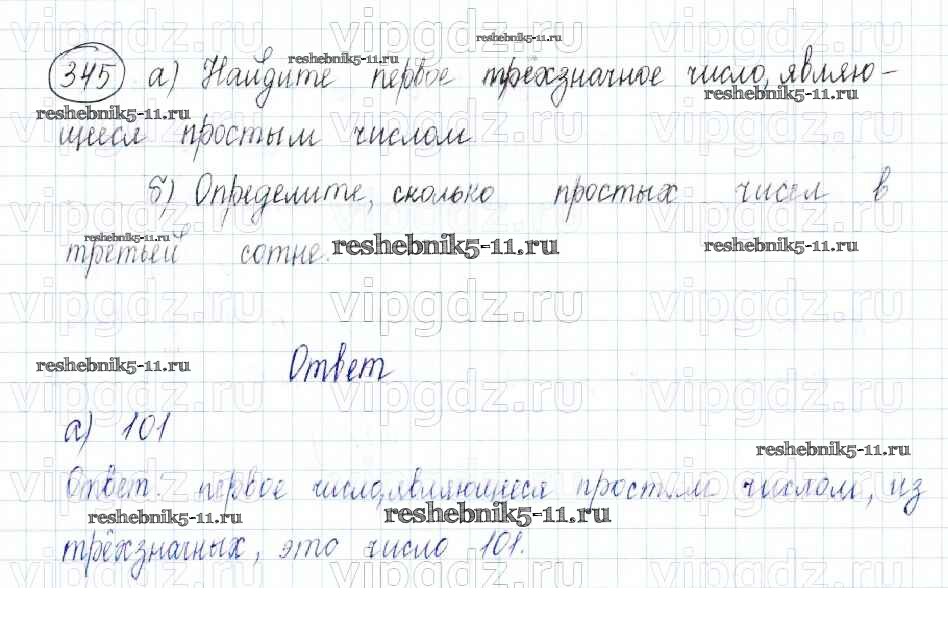 345 а) Найдите первое трёхзначное число, являю-
щееся простым числом
б) Определите, сколько простых чисел в
третьей сотне.
Ответ
а) 101
Ответ: первое число, являющееся простым числом, из
трёхзначных, это число 101.
reshebnik5-11.ru
reshebnik5-11.ru
reshebnik5-11.ru
reshebnik5-11.ru
reshebnik5-11.ru
reshebnik5-11.ru
reshebnik5-11.ru
reshebnik5-11.ru
reshebnik5-11.ru
reshebnik5-11.ru
reshebnik5-11.ru
vipgdz.ru